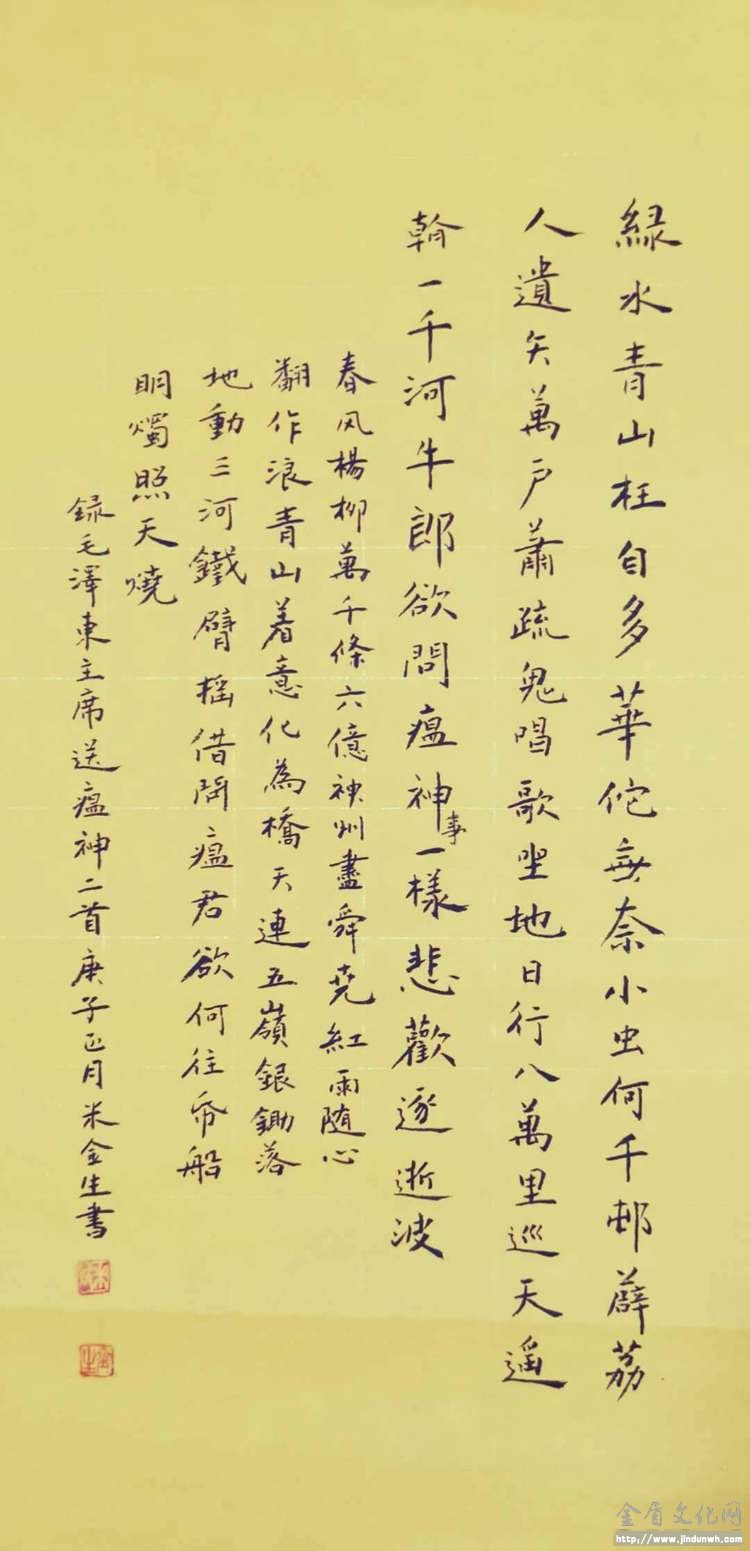 緑水青山枉自多華佗無奈小虫何千邨薜荔
人遺矢萬户蕭疏鬼唱歌坐地日行八萬里巡天遥
看一千河牛郎欲問瘟神事一樣悲歡逐逝波
春风楊柳萬千條六億神州盡舜尭紅雨随心
翻作浪青山着意化為橋天連五嶺銀鋤落
地動三河鐵臂摇借問瘟君欲何往帋船
明燭照天燒
録毛澤東主席送瘟神二首庚子正月米金生書
金盾文化网
http://www.jindunwh.com